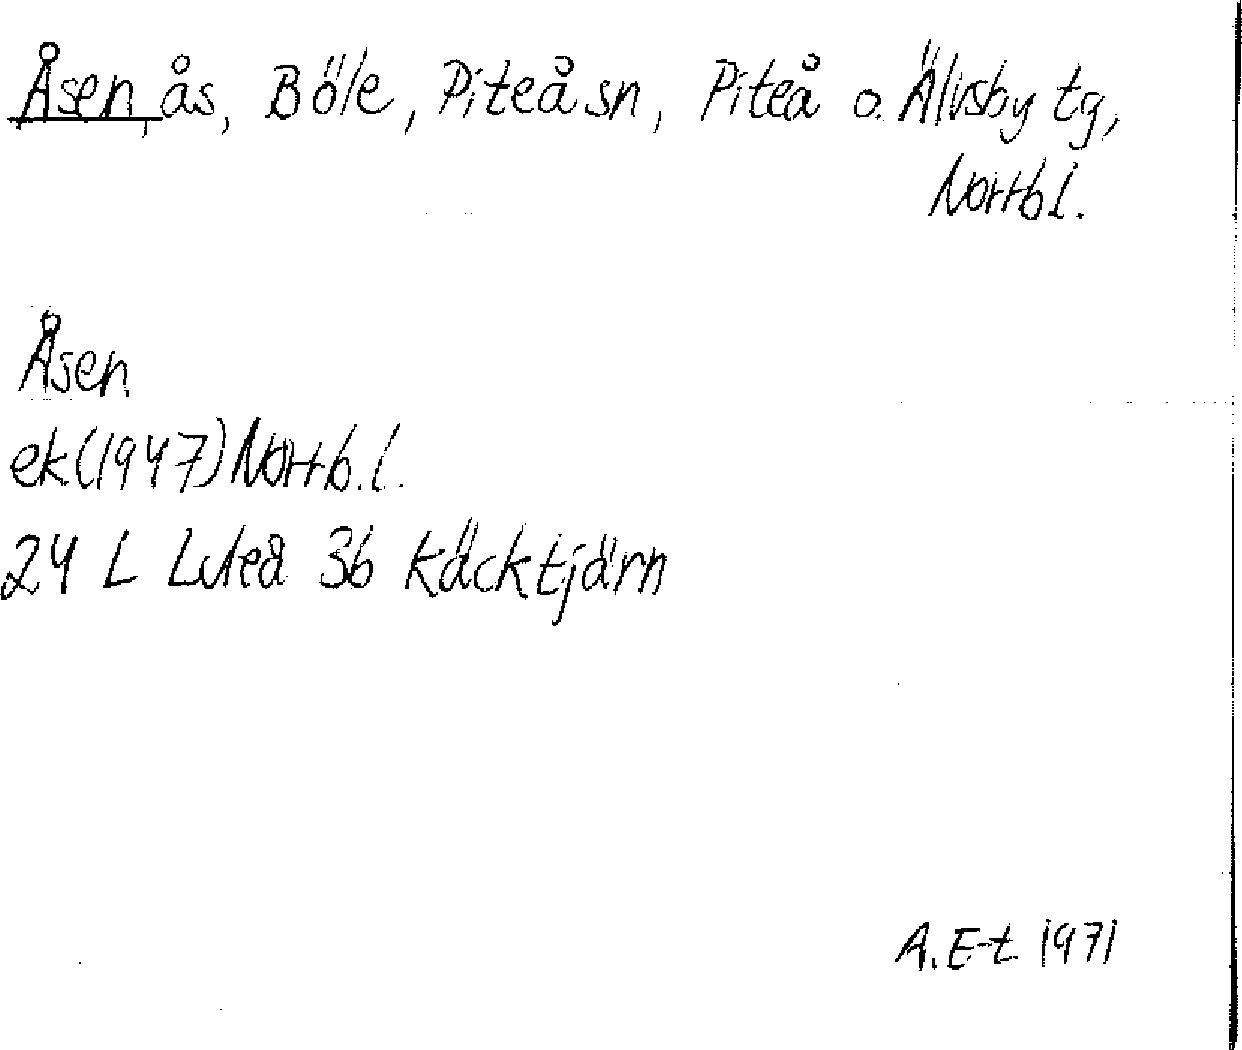 Åsen, ås, Böle, Piteå sn, Piteå o. Älvsby tg,
Norrb l.
Åsen
ek (1947) Norrb. l.
24 L Luleå 3b Käcktjärn
A. E-t 1971